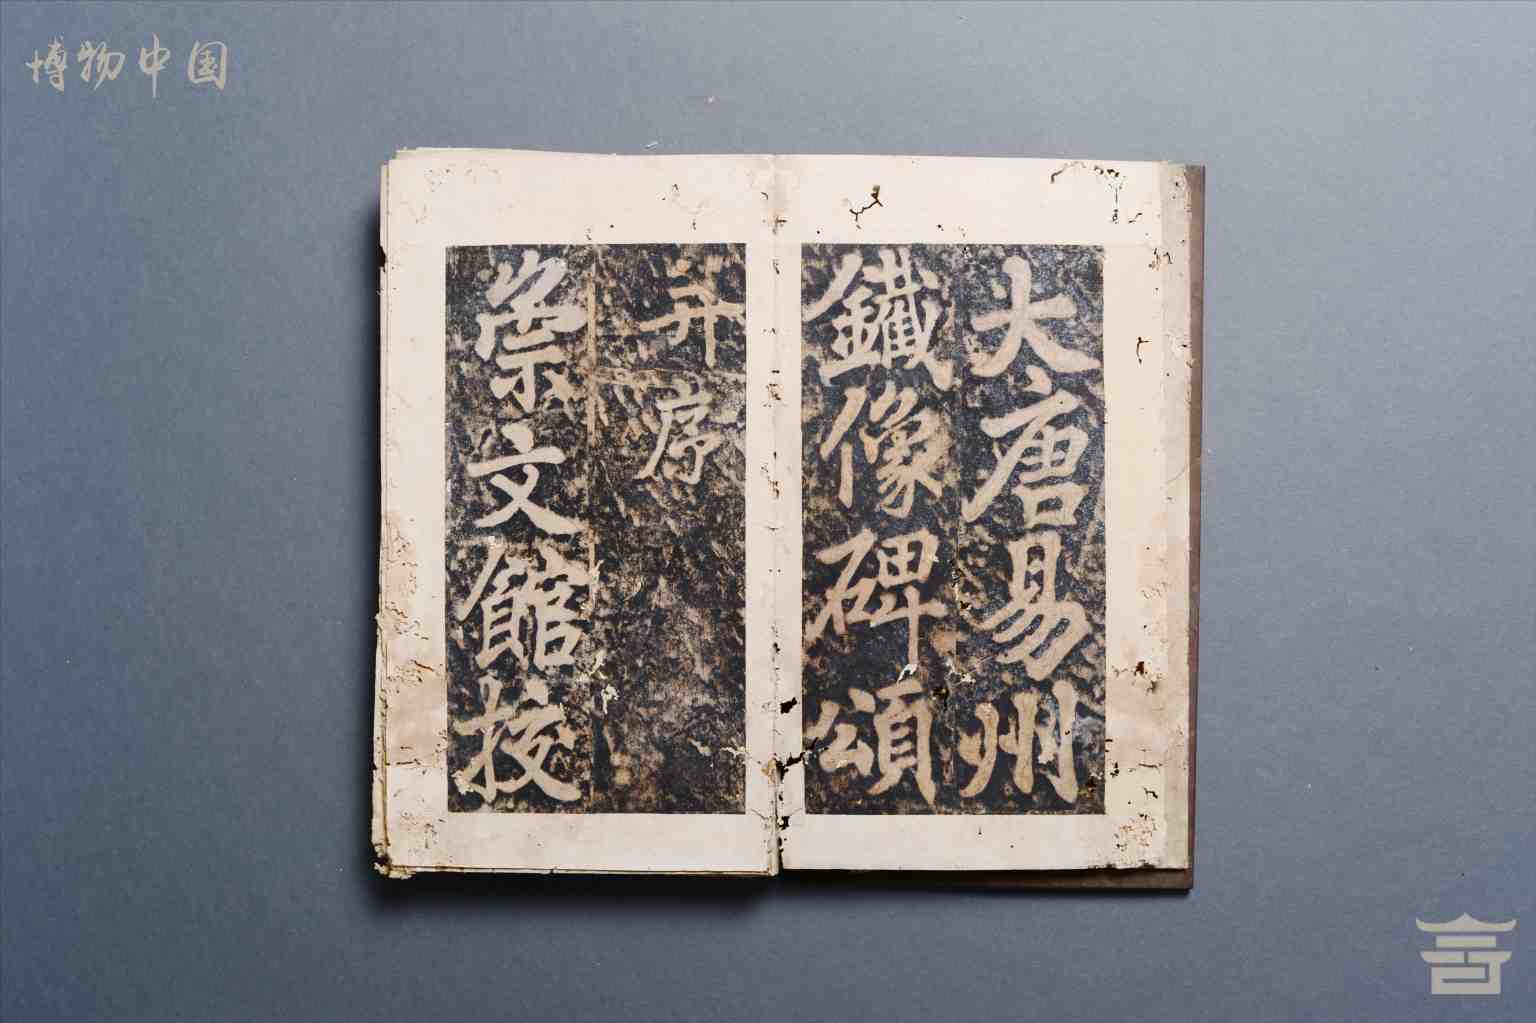 博物中国
大唐易州
鐵像碑頌
并序
崇文館校